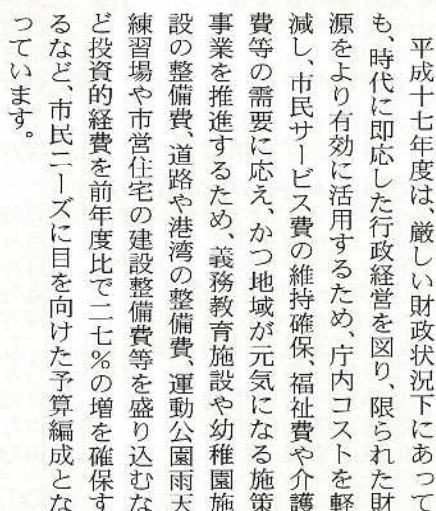 平成十七年度は、厳しい財政状況下にあって
も、時代に即応した行政経営を図り、限られた財
源をより有効に活用するため、庁内コストを軽
減し、市民サービス費の維持確保、福祉費や介護
費等の需要に応え、かつ地域が元気になる施策
事業を推進するため、義務教育施設や幼稚園施
設の整備費、道路や港湾の整備費、運動公園雨天
練習場や市営住宅の建設整備費等を盛り込むな
ど投資的経費を前年度比で二七%の増を確保す
るなど、市民ニーズに目を向けた予算編成とな
っています。